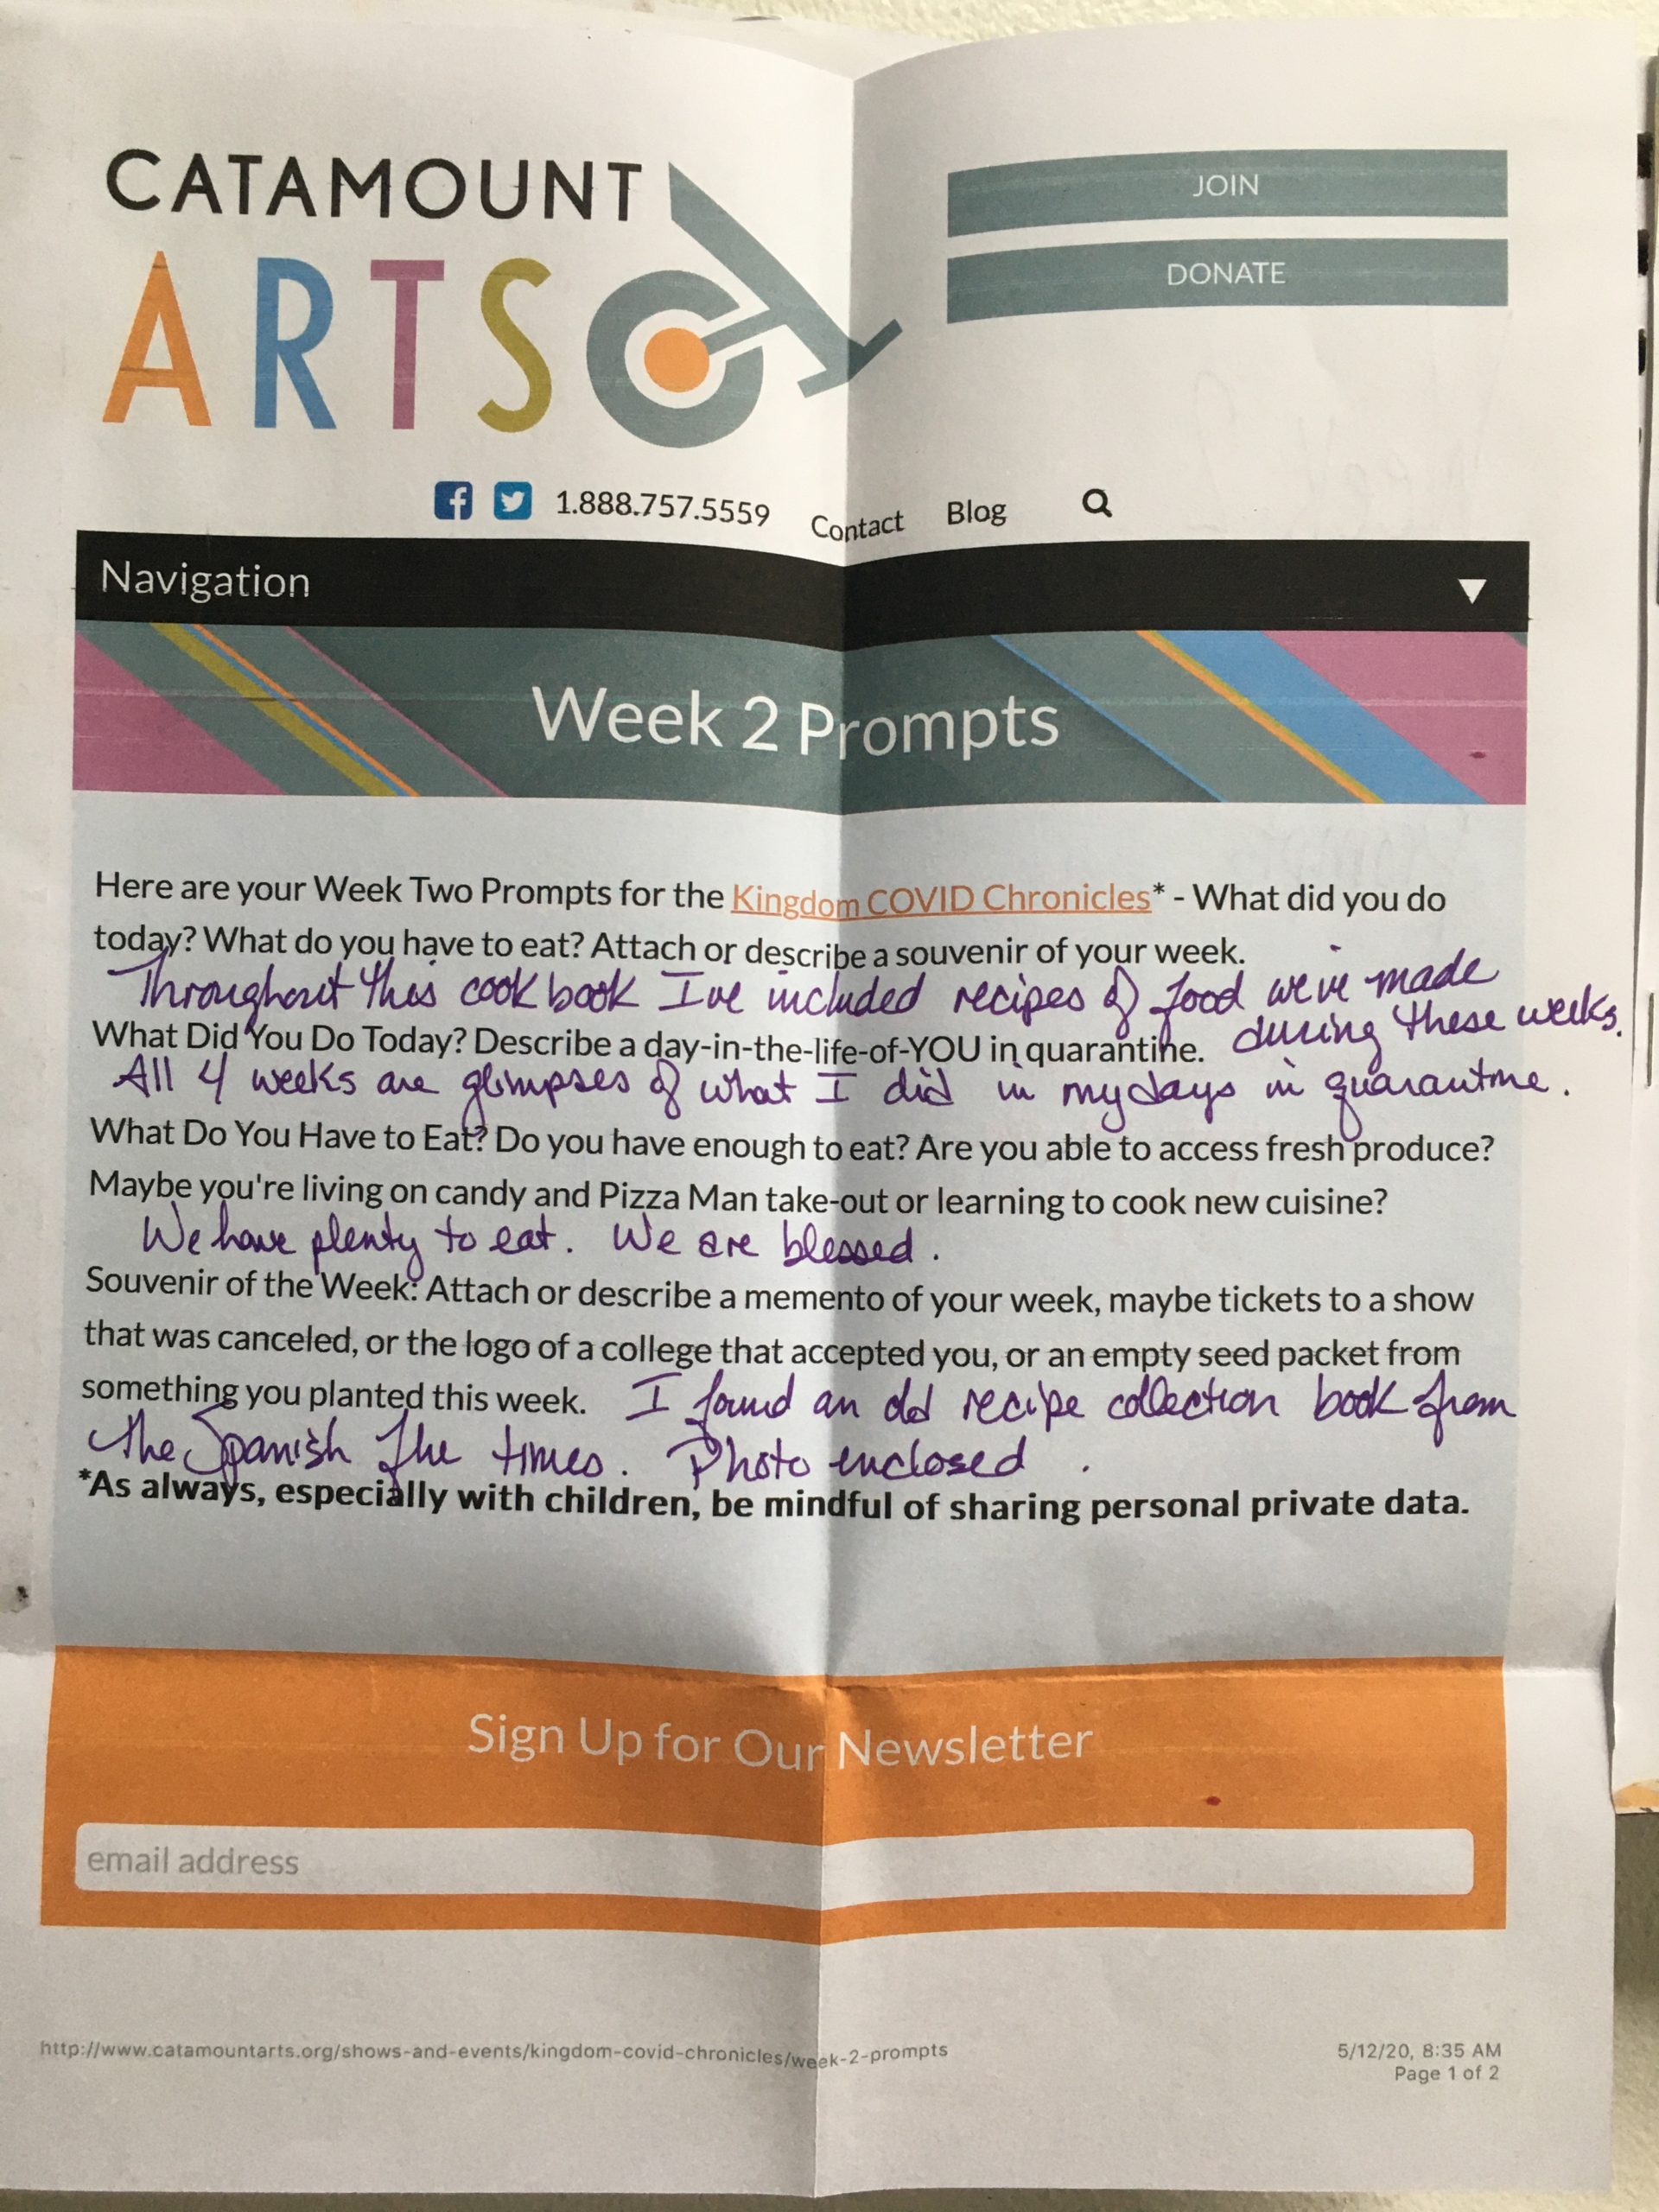 CATAMOUNT
ARTS
JOIN
DONATE
1.888.757.5559 Contact Blog
Navigation
Week 2 Prompts
Here are your Week Two Prompts for the Kingdom COVID Chronicles* - What did you do
today? What do you have to eat? Attach or describe a souvenir of your week.
Throughout this cookbook I've included recipes of food we've made
during these weeks.
What Did You Do Today? Describe a day-in-the-life-of-YOU in quarantine.
All 4 weeks are glimpses of what I did in my days in quarantine.
What Do You Have to Eat? Do you have enough to eat? Are you able to access fresh produce?
Maybe you're living on candy and Pizza Man take-out or learning to cook new cuisine?
We have plenty to eat. We are blessed.
Souvenir of the Week: Attach or describe a memento of your week, maybe tickets to a show
that was canceled, or the logo of a college that accepted you, or an empty seed packet from
something you planted this week. I found an old recipe collection book from
the Spanish flu times. Photo enclosed.
*As always, especially with children, be mindful of sharing personal private data.
Sign Up for Our Newsletter
email address
http://www.catamountarts.org/shows-and-events/kingdom-covid-chronicles/week-2-prompts
5/12/20, 8:35 AM
Page 1 of 2